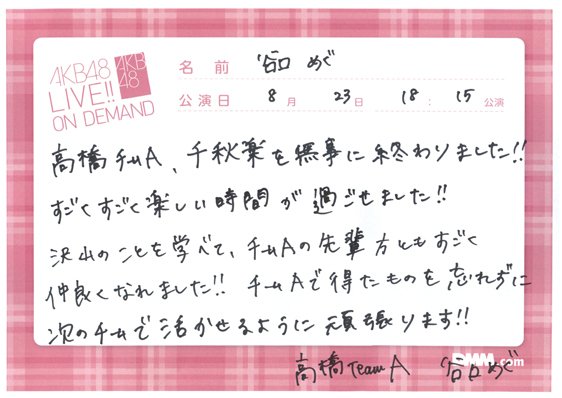 AKB48
LIVE!!
ON DEMAND
AKB
48
名 前 谷口 めぐ
公演日 8月 23日 18:15公演
高橋チームA、千秋楽を無事に終わりました!!
すごくすごく楽しい時間が過ごせました!!
沢山のことを学べて、チームAの先輩方ともすごく
仲良くなれました!! チームAで得たものを忘れずに
次のチームで活かせるように頑張ります!!
DMM.com
高橋TeamA 谷口めぐ